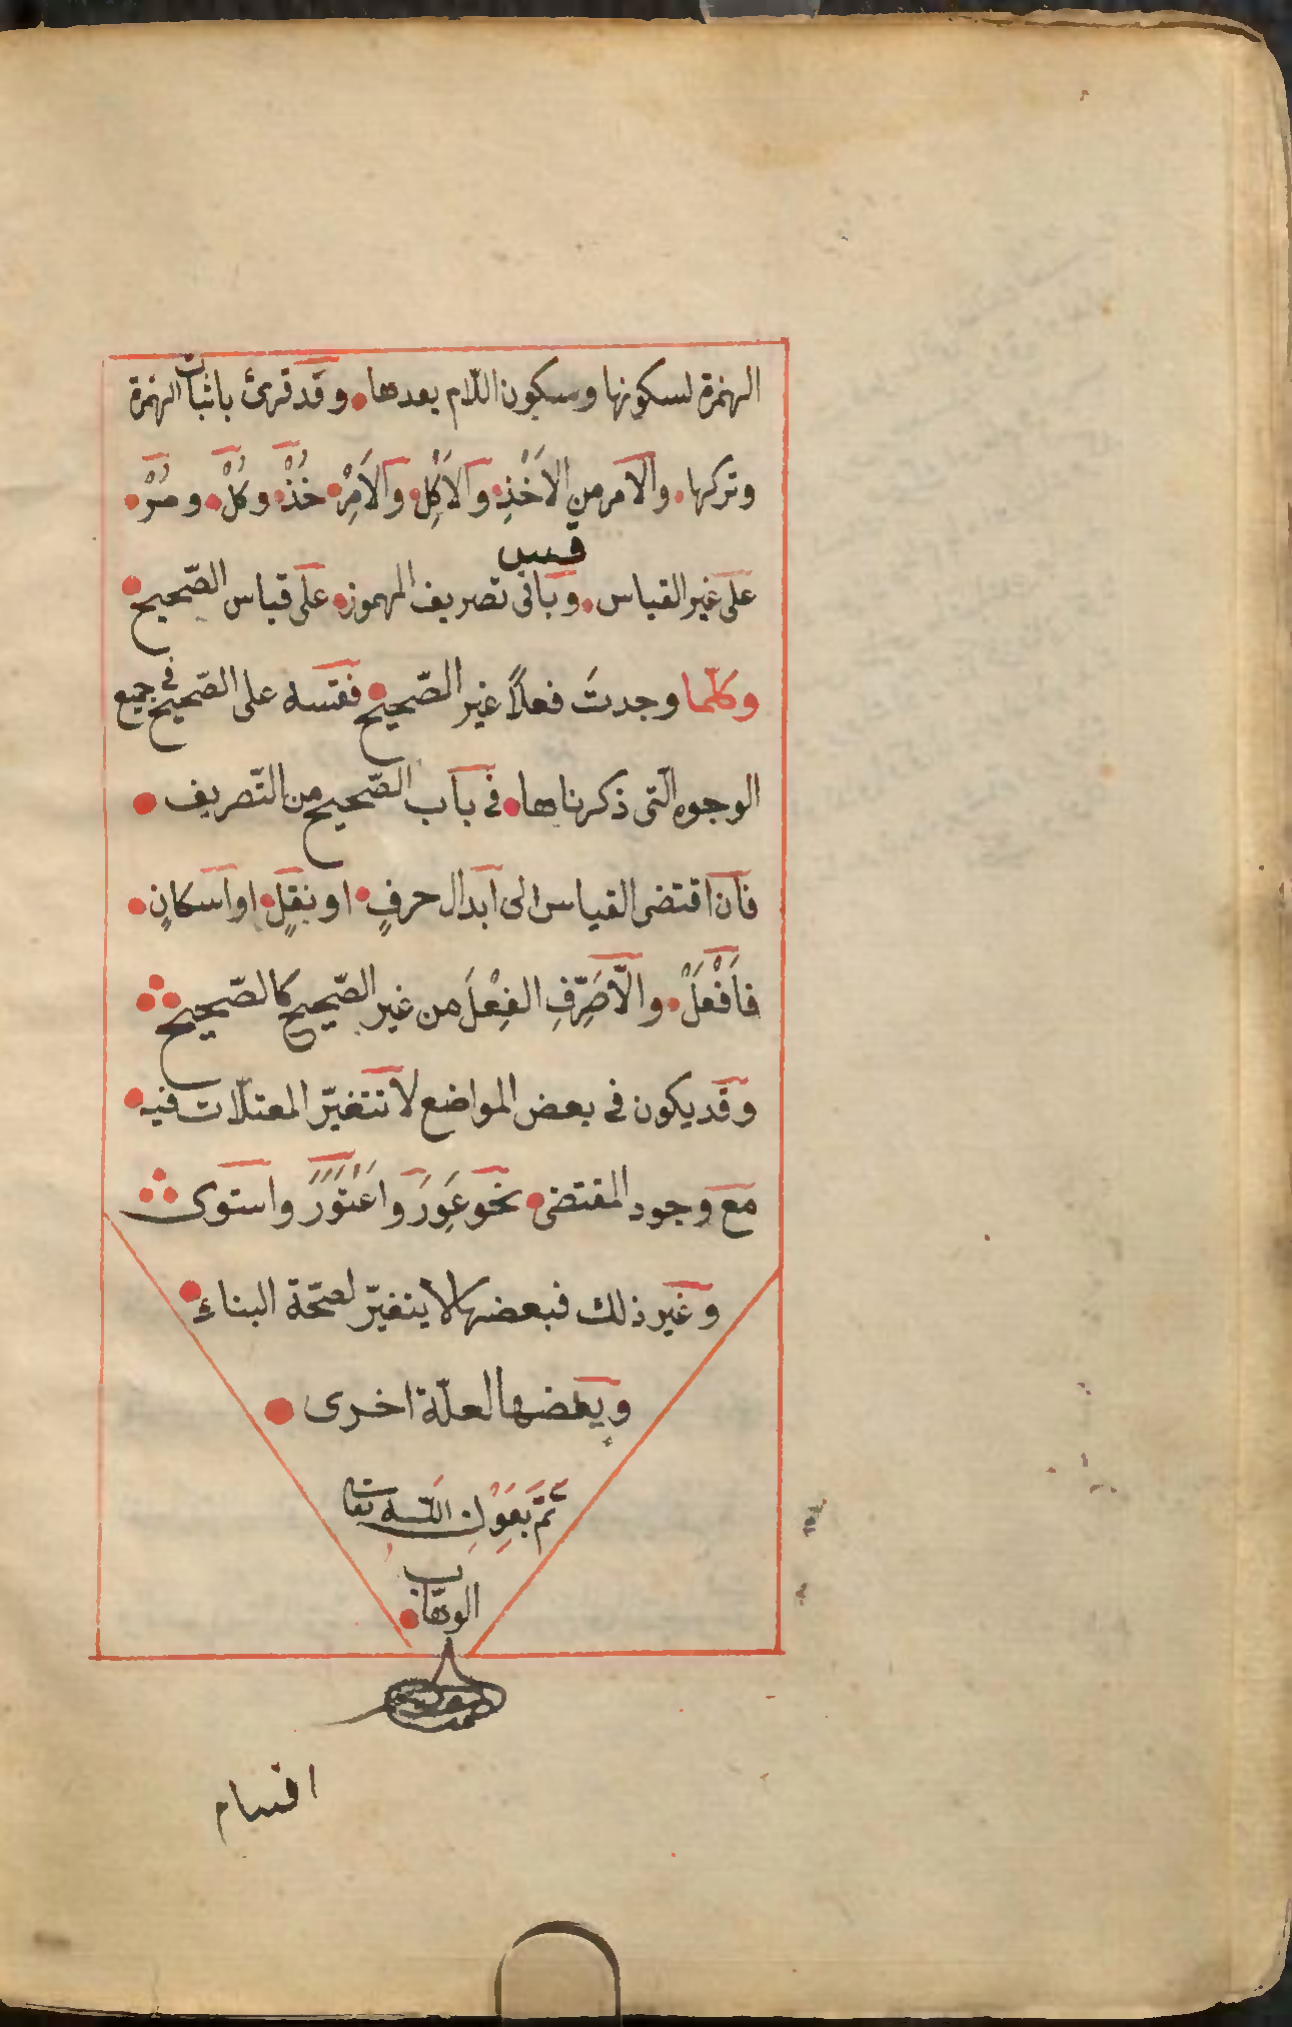 الهمزة لسكونها وسكون اللّام بعدها • وقد قرئ باثبات الهمزة
وتركها • والامر من الاَخْذِ • والاَكْلِ • والاَمْرِ • خُذْ • وكُلْ • ومُرْ •
على غير القياس • وباقى تصريف المهموز • على قياس الصّحيح •
وكلّما وجدتَ فعلاً غير الصّحيح • فقسه على الصّحيح فى جميع
الوجوه الّتى ذكرناها • فى باب الصّحيح من التّصريف •
فان اقتضى القياس الى ابدال حرفٍ • او نقلٍ • او اسكانٍ •
فاَفْعَلْ • والّا صَرِّفِ الفِعْلَ من غير الصّحيح كالصّحيح
وقد يكون فى بعض المواضع لا تتغيّر المعتلّات فيه •
مع وجود المقتضى • نحو عَوِرَ واعْتَوَرَ واستوى
وغير ذلك فبعضها لا يتغيّر لصحّة البناء •
وبعضها لعلّة اخرى •
تَمَّ بِعَوْنِ اللّه
الوهّاب •
اقسام